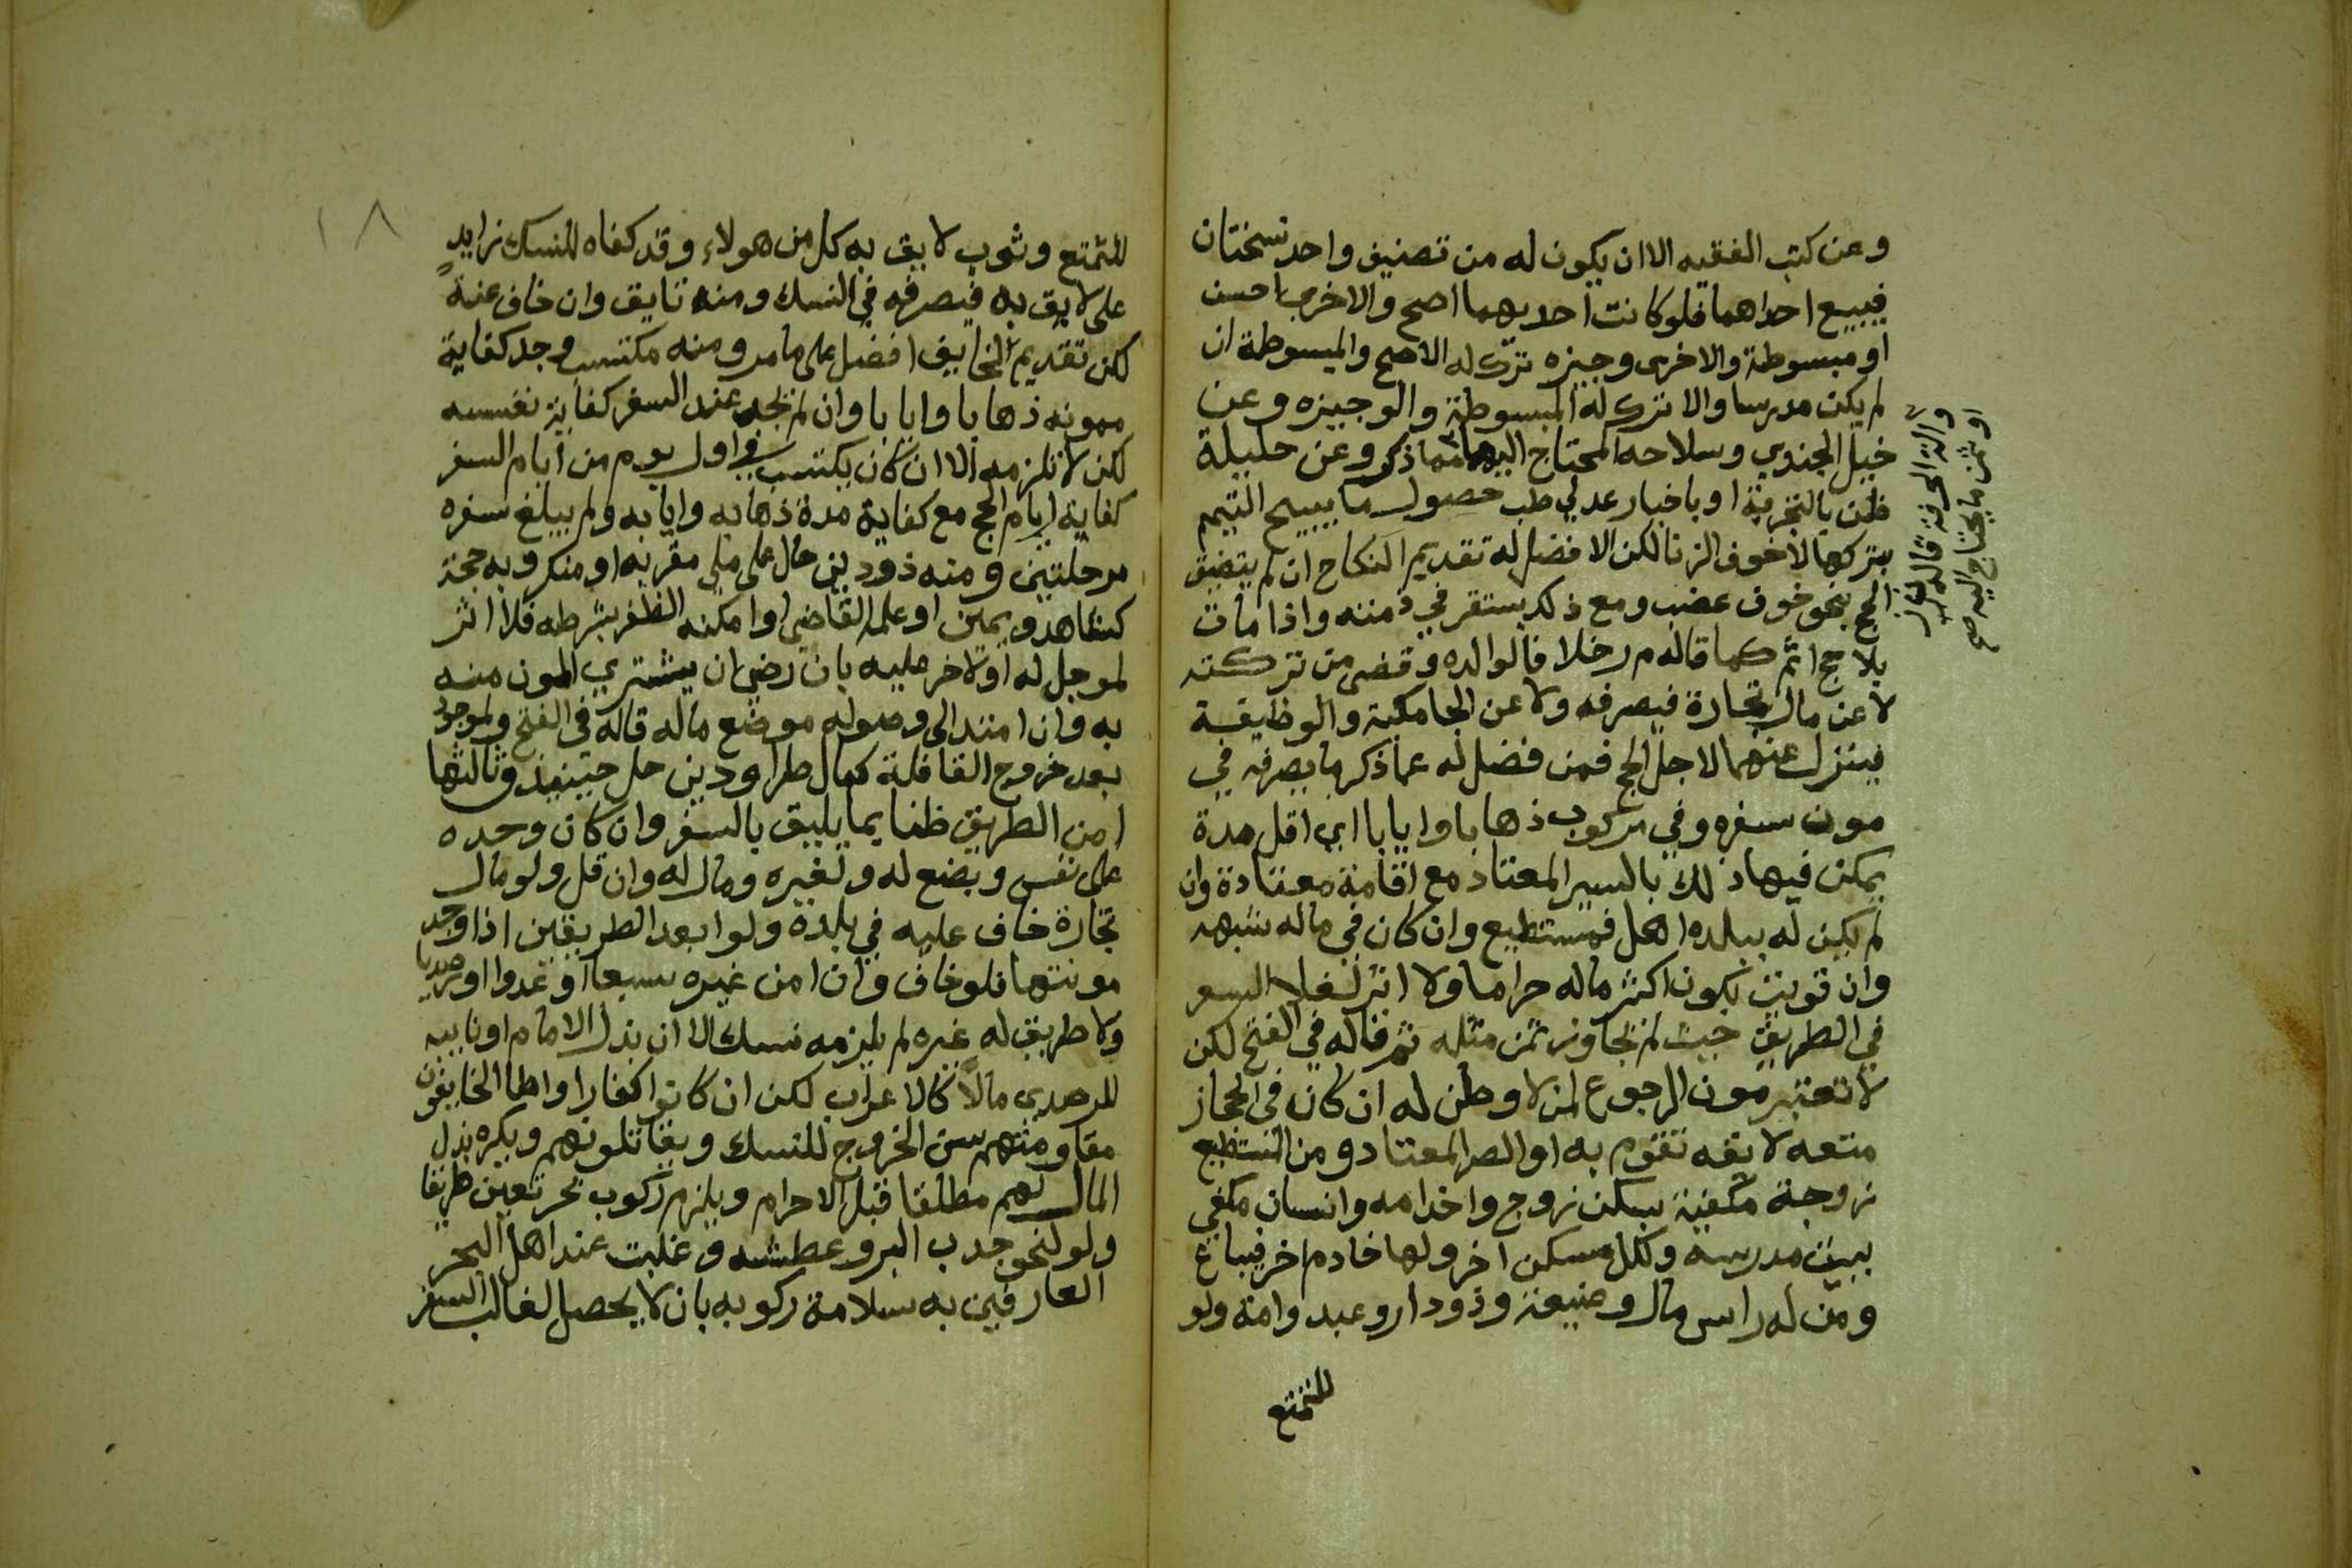 وعن كتب الفقيه الا ان يكون له من تصنيف واحد نسختان
فيبيع احداهما فلو كانت احديهما اصح والاخرى احسن
او مبسوطة والاخرى وجيزه ترك له الاصح والمبسوطة ان
لم يكن مدرسا والا ترك له المبسوطة والوجيزه وعن
خيل الجندي وسلاحه المحتاج اليهما مما ذكر وعن حليلة
ظن بالتجربة او باخبار عدلي طب حصول ما يبيح التيمم
بتركها لا خوف الزنا لكن الافضل له تقديم النكاح ان لم يتضيق
الحج بنحو خوف عضب ومع ذلك يستقر في ذمته واذا مات
بلا حج اثم كما قاله م ر خلافا لوالده وقضى من تركته
لا عن مال تجارة فيصرفه ولا عن الجامكية والوظيفة
فينزل عنهما لاجل الحج فمن فضل له عما ذكر ما يصرفه في
مون سفره وفي مركوب ذهابا وايابا اي اقل مدة
يمكن فيها ذلك بالسير المعتاد مع اقامة معتادة وان
لم يكن له ببلده اهل فمستطيع وان كان في ماله شبهه
وان قويت بكون اكثر ماله حراما ولا اثر لغلا السعر
في الطريق حيث لم تجاوز ثمن مثله ثم قاله في الفتح لكن
لا تعتبر مون الرجوع لمن لا وطن له ان كان في الحجاز
متعه لا يقه تقوم به او المعتاد ومن المستطيع
زوجة مكفية بسكن زوج واخدامه وانسان مكفي
ببيت مدرسه ولكل مسكن اخر ولها خادم اخر فيباع
ومن له راس مال وضيعة وذو دار وعبد وامة ولو
للتمتع
والة الحرفة قاله
او ثمن ما يحتاج اليه صح
١٨
للتمتع وثوب لايق به كل من هولاء وقد كفاه للنسك زايد
على لايق به فيصرفه في النسك ومنه تايق وان خاف عنة
لكن تقديم الخايف افضل على ما مر ومنه مكتسب وجد كفاية
ممونه ذهابا وايابا وان لم يجد عند السفر كفاية نفسه
لكن لا تلزمه الا ان كان يكتسب في اول يوم من ايام السفر
كفاية ايام الحج مع كفاية مدة ذهابه وايابه ولم يبلغ سفره
مرحلتين ومنه ذو دين حال على ملي مقر به او منكر وبه حجة
كشاهد ويمين او علم القاضي او امكنه الظفر بشرطه فلا اثر
لموجل له او لاخر عليه بان رضي ان يشتري المون منه
به وان امتد الى وصوله موضع ماله قاله في الفتح ولموجود
بعد خروج القافلة كمال طرا ودين حل حينيذ وثالثها
امن الطريق ظنا بما يليق بالسفر وان كان وحده
على نفس وبضع له ولغيره ومال له وان قل ولو مال
تجارة خاف عليه في بلده ولو ابعد الطريقين اذا وجد
مونتها فلو خاف وان امن غيره سبعا او عدوا او رصديا
ولا طريق له غيره لم يلزمه نسك الا ان بذل الامام او نايبه
للرصدي مالا كالاعراب لكن ان كانوا كفارا واطاق الخايفون
مقاومتهم سن الخروج للنسك ويقاتلونهم ويكره بذل
المال لهم مطلقا قبل الاحرام ويلزم ركوب بحر تعين طريقا
ولو لنحو جدب البر وعطشه وغلبت عند اهل البحر
العارفين به سلامة ركوبه بان لا يحصل لغالب السفر